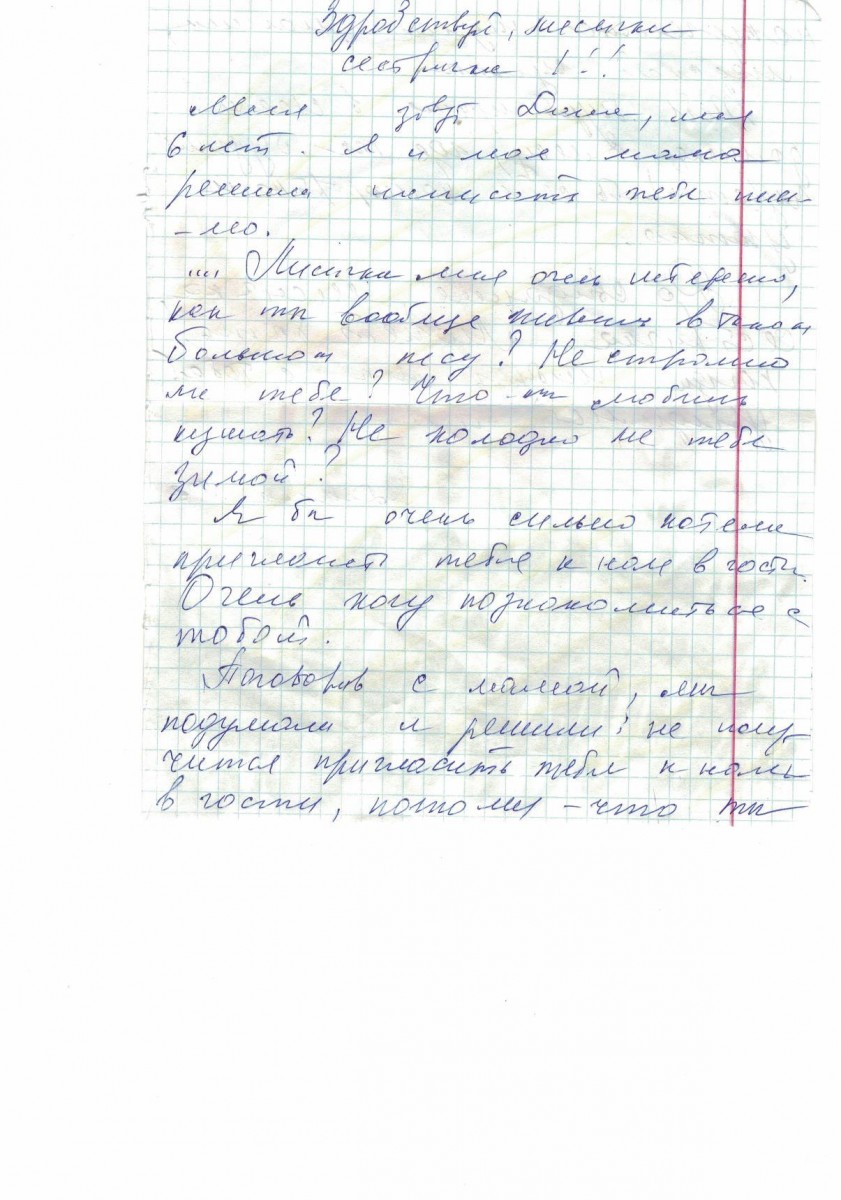 Здравствуй, лисичка
сестричка !!!
Меня зовут Даша, мне
6 лет. Я и моя мама
решили написать тебе пись-
-мо.
.... Лисичка мне очень интересно,
как ты вообще живешь в таком
большом лесу? Не страшно
ли тебе? Что ты любишь
кушать? Не холодно ли тебе
зимой ?
Я бы очень сильно хотела
пригласить тебя к нам в гости.
Очень хочу познакомиться с
тобой.
Поговорив с мамой, мы
подумали и решили: не полу-
чится пригласить тебя к нам
в гости, потому-что ты